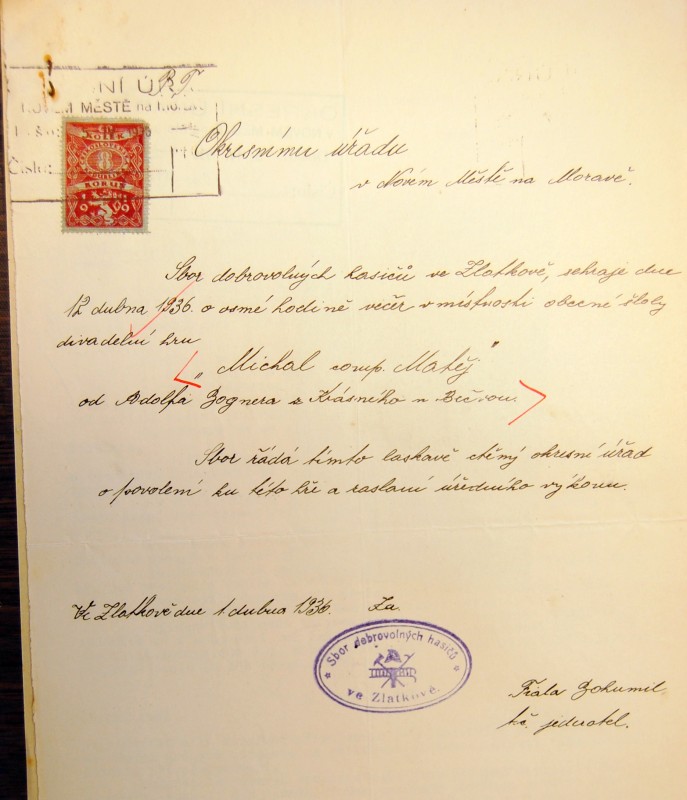 NÍ ÚŘ
P.T.
NOVÉM MĚSTĚ na Moravě
Došlo:
Číslo:
KOLEK
ČESKOSLOVENSKÁ
8
REPUBLIKA
KORUN
Okresnímu úřadu
v Novém Městě na Moravě.
Sbor dobrovolných hasičů ve Zlatkově, sehraje dne
12 dubna 1936. o osmé hodině večer v místnosti obecné školy
divadelní hru
„Michal comp. Matěj"
od Adolfa Bognera z Krásného n Bečvou.
Sbor žádá tímto laskavě ctěný okresní úřad
o povolení ku této hře a zaslaní úředního výkonu.
Ve Zlatkově dne 1 dubna 1936. Za.
* Sbor dobrovolných hasičů *
ve Zlatkově.
Fiala Bohumil
t.č. jednatel.